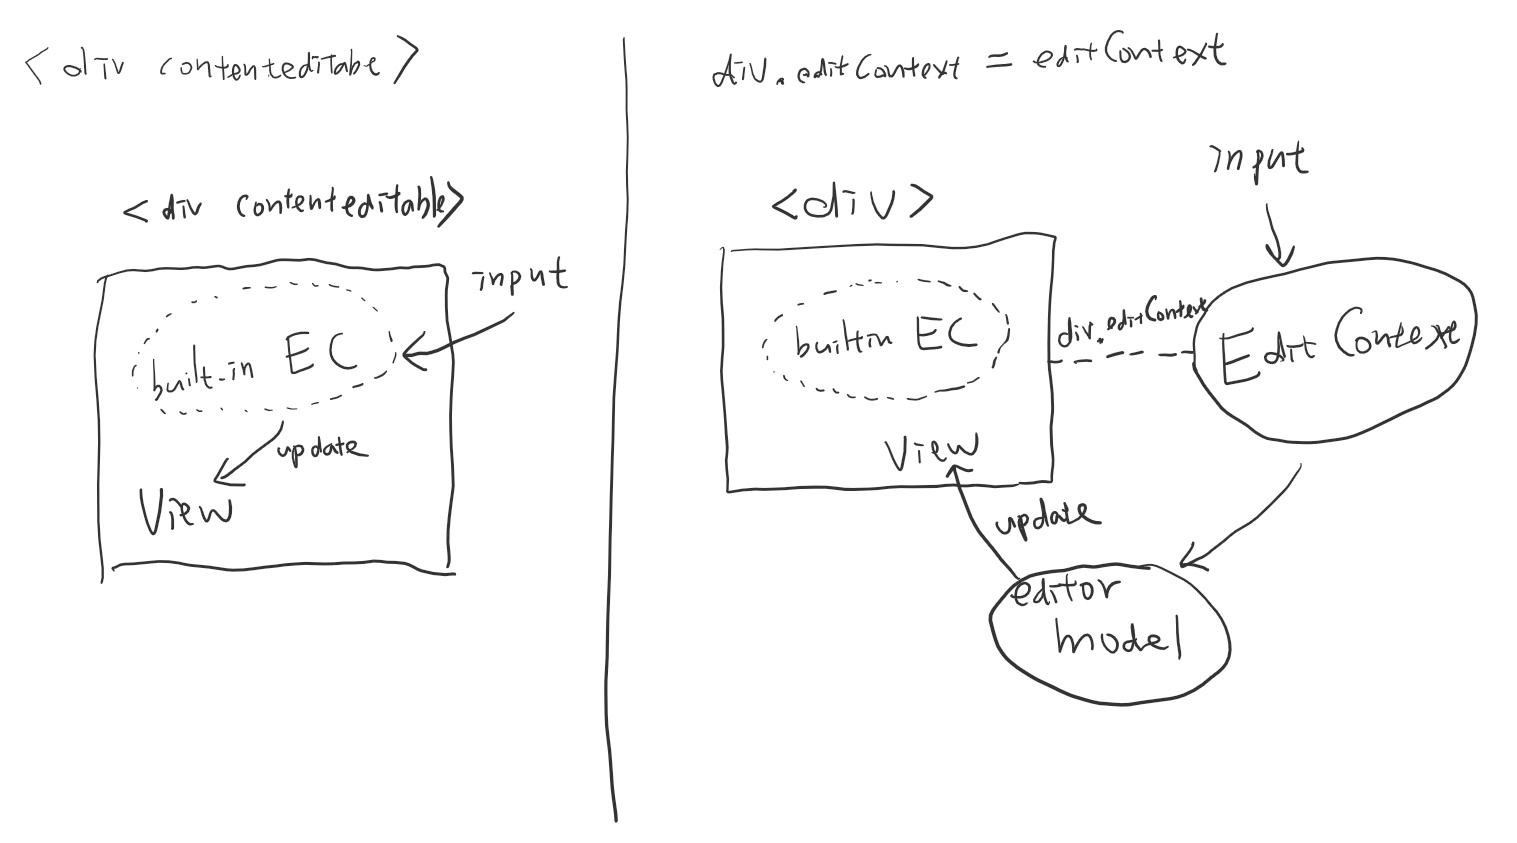 <div contenteditabe>
<div contenteditable>
input
built-in EC
update
View
div.editContext = editContext
input
<div>
div.editContext
builtin EC
Edit Context
View
update
editor
model